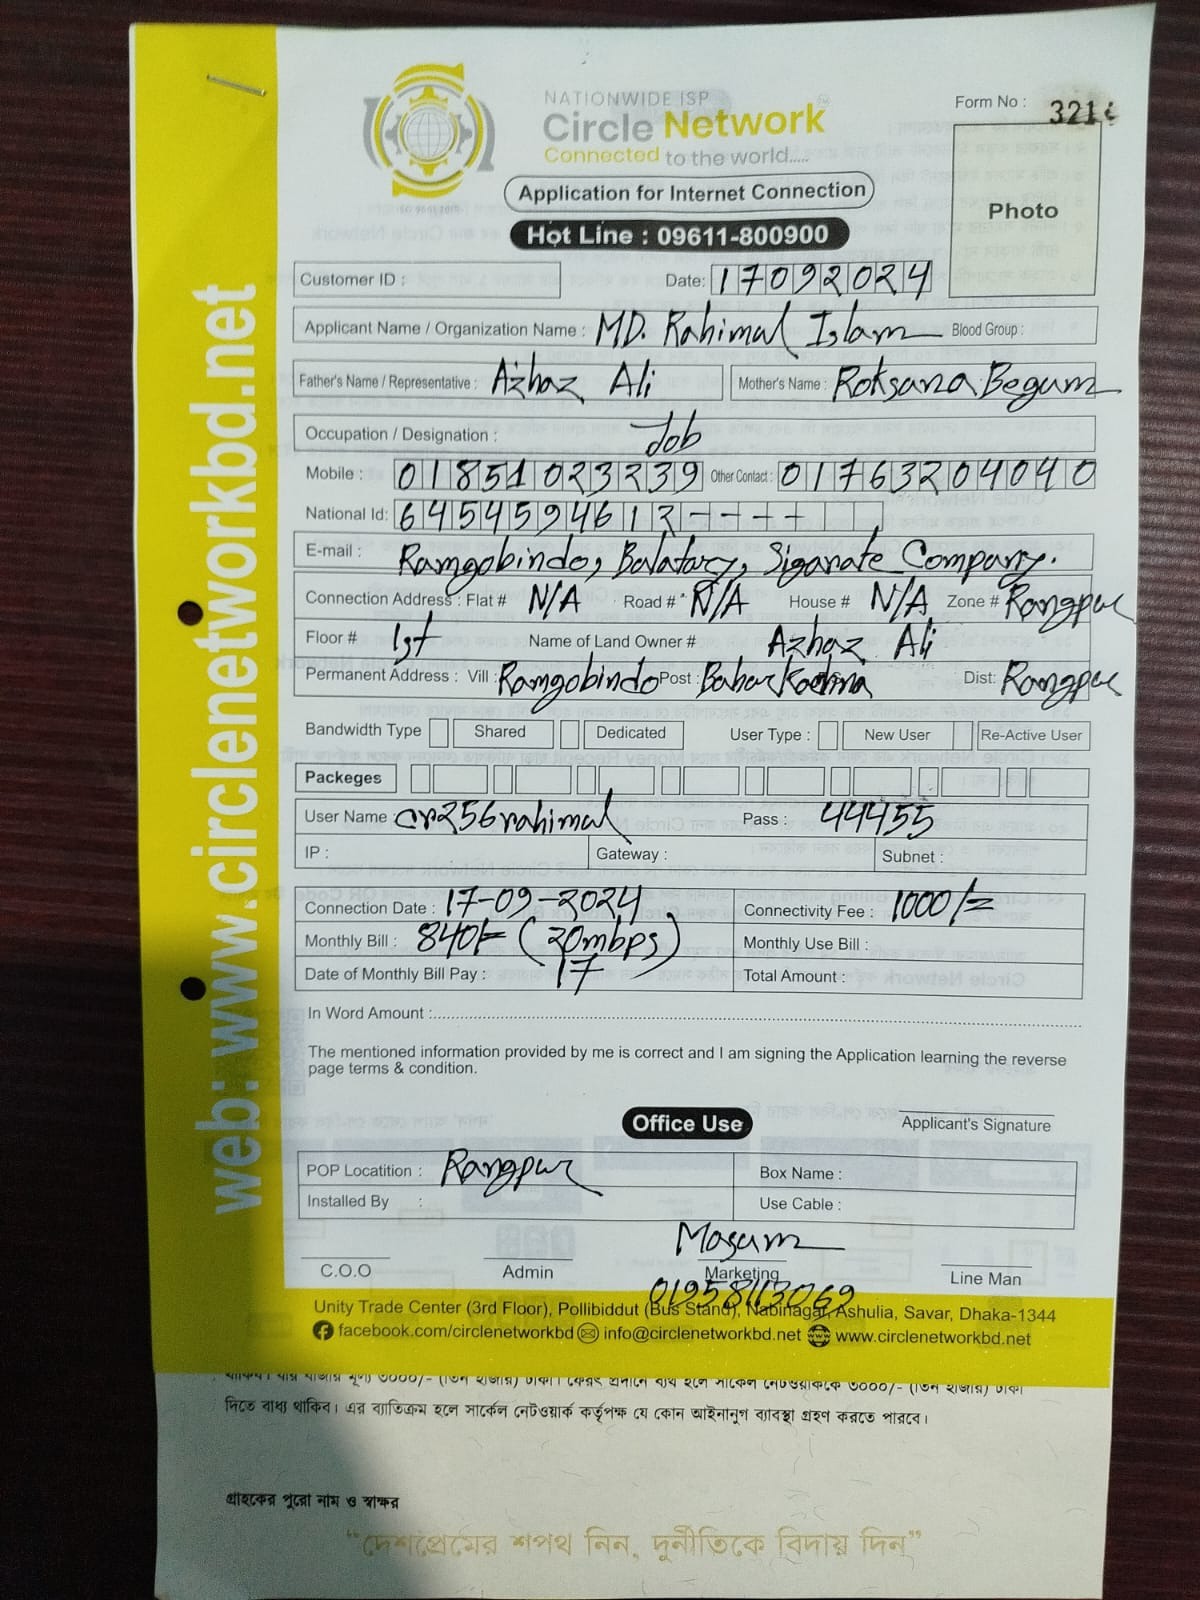 NATIONWIDE ISP
Circle Network
Connected to the world.....
Form No : 321
Application for Internet Connection
Photo
Hot Line : 09611-800900
Customer ID :
Date: 17092024
Applicant Name / Organization Name : MD. Rahimal Islam Blood Group :
Father's Name / Representative : Azhaz Ali Mother's Name : Roksana Begum
Occupation / Designation : Job
Mobile : 01851023239 Other Contact : 01763204040
National Id: 6454594612 - - - -
E-mail : Ramgobindo, Balatary, Siganate Company.
Connection Address : Flat # N/A Road # N/A House # N/A Zone # Rangpur
Floor # 1st Name of Land Owner # Azhaz Ali
Permanent Address : Vill : Ramgobindo Post : Dist: Rangpur
Bandwidth Type Shared Dedicated User Type : New User Re-Active User
Packeges
User Name : cr256rahimal Pass : 44455
IP : Gateway : Subnet :
Connection Date : 17-09-2024 Connectivity Fee : 1000/=
Monthly Bill : 840/= (20mbps) Monthly Use Bill :
Date of Monthly Bill Pay : 17 Total Amount :
In Word Amount :
The mentioned information provided by me is correct and I am signing the Application learning the reverse
page terms & condition.
Office Use
Applicant's Signature
POP Locatition : Rangpur Box Name :
Installed By : Use Cable :
Masum
C.O.O Admin Marketing Line Man
01958113069
Unity Trade Center (3rd Floor), Pollibiddut (Bus Stand), Nabinagar, Ashulia, Savar, Dhaka-1344
facebook.com/circlenetworkbd info@circlenetworkbd.net www.circlenetworkbd.net
web: www.circlenetworkbd.net
দিতে বাধ্য থাকিব। এর ব্যতিক্রম হলে সার্কেল নেটওয়ার্ক কর্তৃপক্ষ যে কোন আইনানুগ ব্যাবস্থা গ্রহণ করতে পারবে।
গ্রাহকের পুরো নাম ও স্বাক্ষর
“দেশপ্রেমের শপথ নিন, দুর্নীতিকে বিদায় দিন”